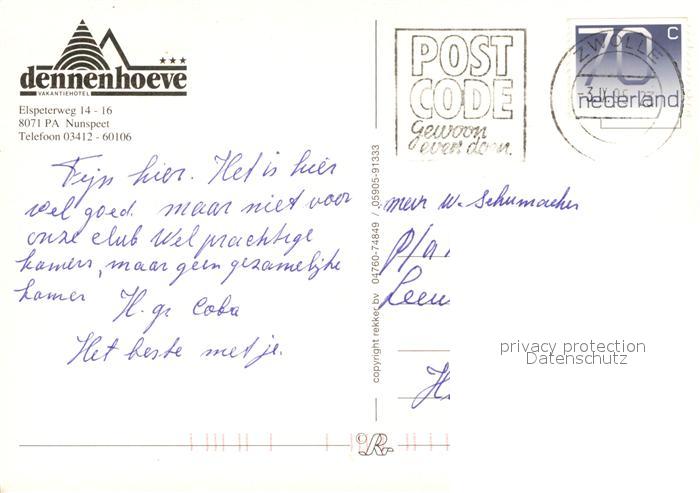 dennenhoeve
VAKANTIEHOTEL
Elspeterweg 14 - 16
8071 PA Nunspeet
Telefoon 03412 - 60106
Fijn hier. Het is hier
wel goed. maar niet voor
onze club Wel prachtige
kamers, maar geen gezamelijke
kamer H. gr Coba
Het beste met je.
copyright rekker bv 04760-74849 / 05905-91333
POST
CODE
gewoon
even doen.
ZWOLLE
70 c
nederland
mevr W. Schumacher
p/a
Leeu
H
R
privacy protection
Datenschutz